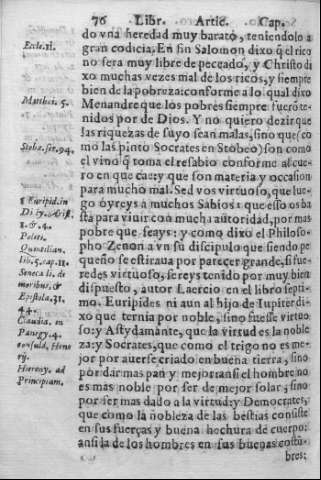 76 Libr. Artic. Cap.
do vna heredad muy barato, teniendolo a
gran codicia. En fin Salomon dixo q̃ el rico
no sera muy libre de peccado, y Christo di
xo muchas vezes mal de los ricos, y siempre
bien de la pobreza: conforme a lo qual dixo
Menandre que los pobres siempre fuerõ te-
nidos por de Dios. Y no quiero dezir que
las riquezas de suyo sean malas, sino que (co
mo las pinto Socrates en Stobeo) son como
el vino q̃ toma el resabio conforme al cue-
ro en que cae: y que son materia y occasion
para mucho mal. Sed vos virtuoso, que lue-
go oyreys a muchos Sabios: que esso os ba
sta para viuir con mucha autoridad, por mas
pobre que seays: y como dixo el Philoso-
pho Zenon a vn su discipulo que siendo pe
queño se estiraua por parecer grande, si fue-
redes virtuoso, sereys tenido por muy bien
dispuesto, autor Laercio en el libro septi-
mo. Euripides ni aun al hijo de Iupiter di-
xo que ternia por noble, sino fuesse virtuo-
so: y Astydamante, que la virtud es la noble
za: y Socrates, que como el trigo no es me-
jor por auerse criado en buena tierra, sino
por dar mas pan y mejor: ansi el hombre no
es mas noble por ser de mejor solar, sino
por ser mas dado a la virtud: y Democrates,
que como la nobleza de las bestias consiste
en sus fuerças y buena hechura de cuerpo:
ansi la de los hombres en sus buenas costũ-
bres:
Eccle. 11.
Matthei. 5.
Stobæ. ser. 94.
¶ Euripid. in
Politi.
Quintilian.
lib. 5. cap. 11.
Seneca li. de
moribus, &
Epistola. 31.
44.
Claudia. in
Panegy. 4.
consula. Hono
rij.
Hierony. ad